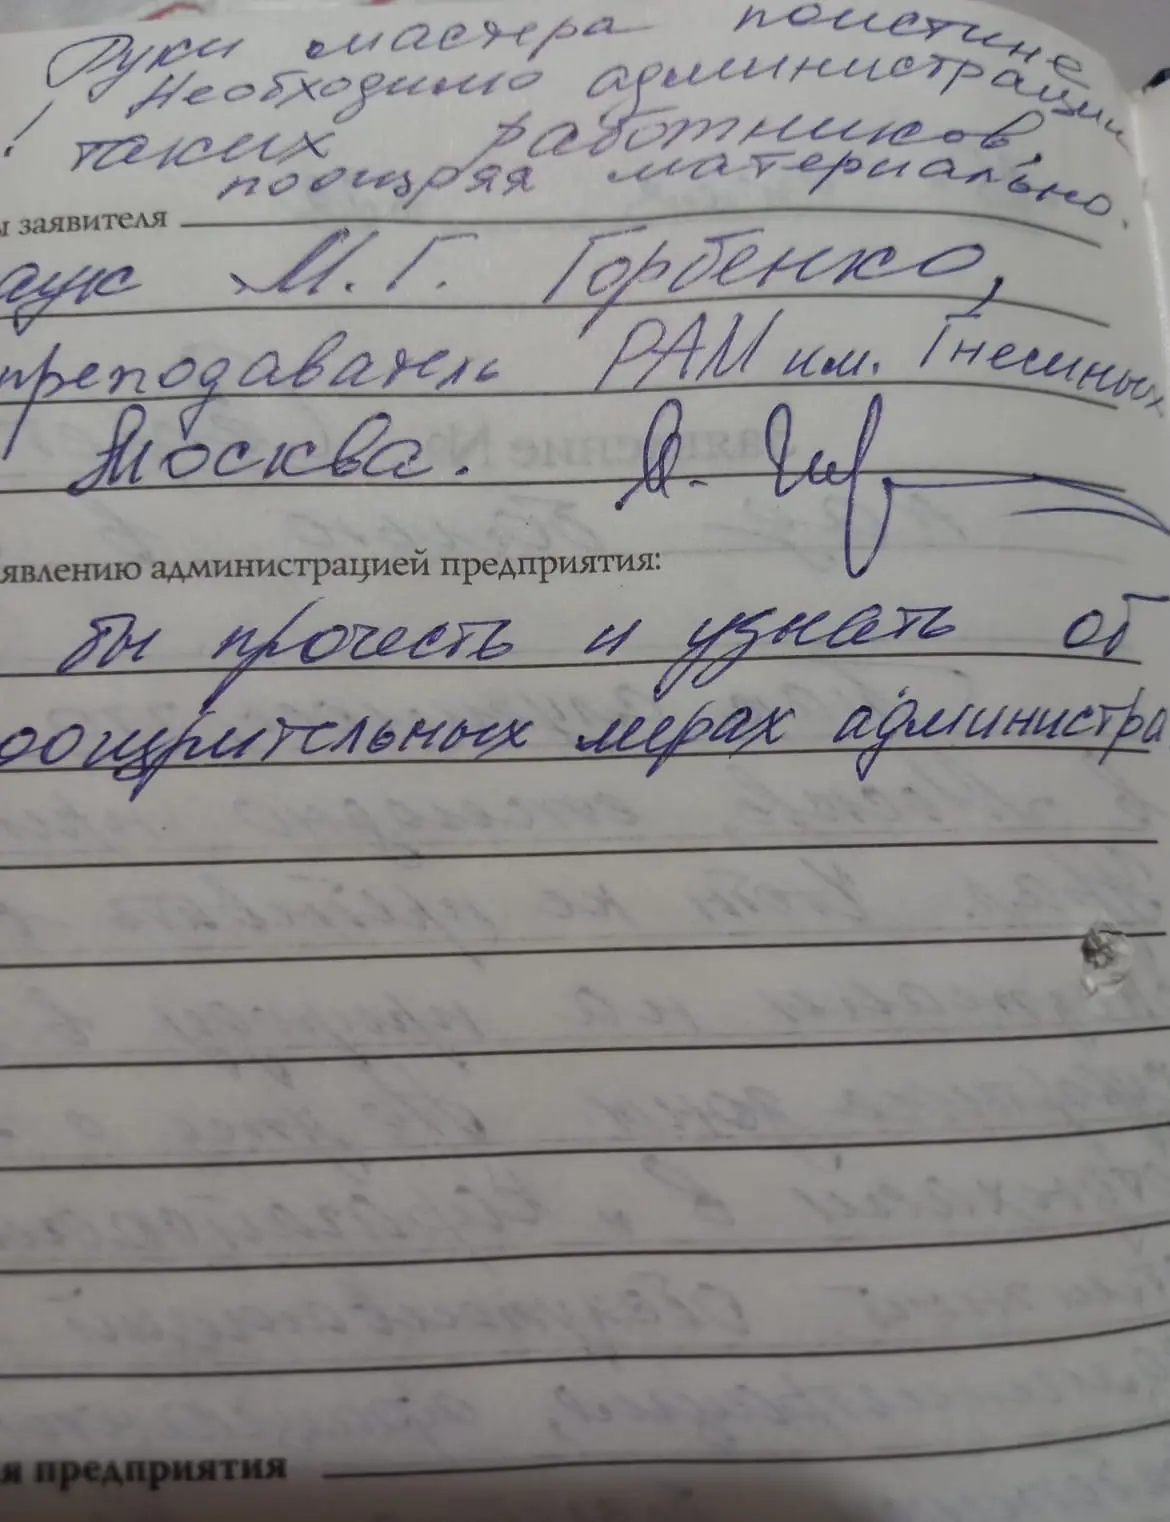 Руки мастера поистине
! Необходимо администрации
таких работников,
поощряя материально.
ы заявителя
аук М. Г. Горбенко,
преподаватель РАМ им. Гнесиных
Москва.
явлению администрацией предприятия:
бы прочесть и узнать об
оощрительных мерах администра
я предприятия